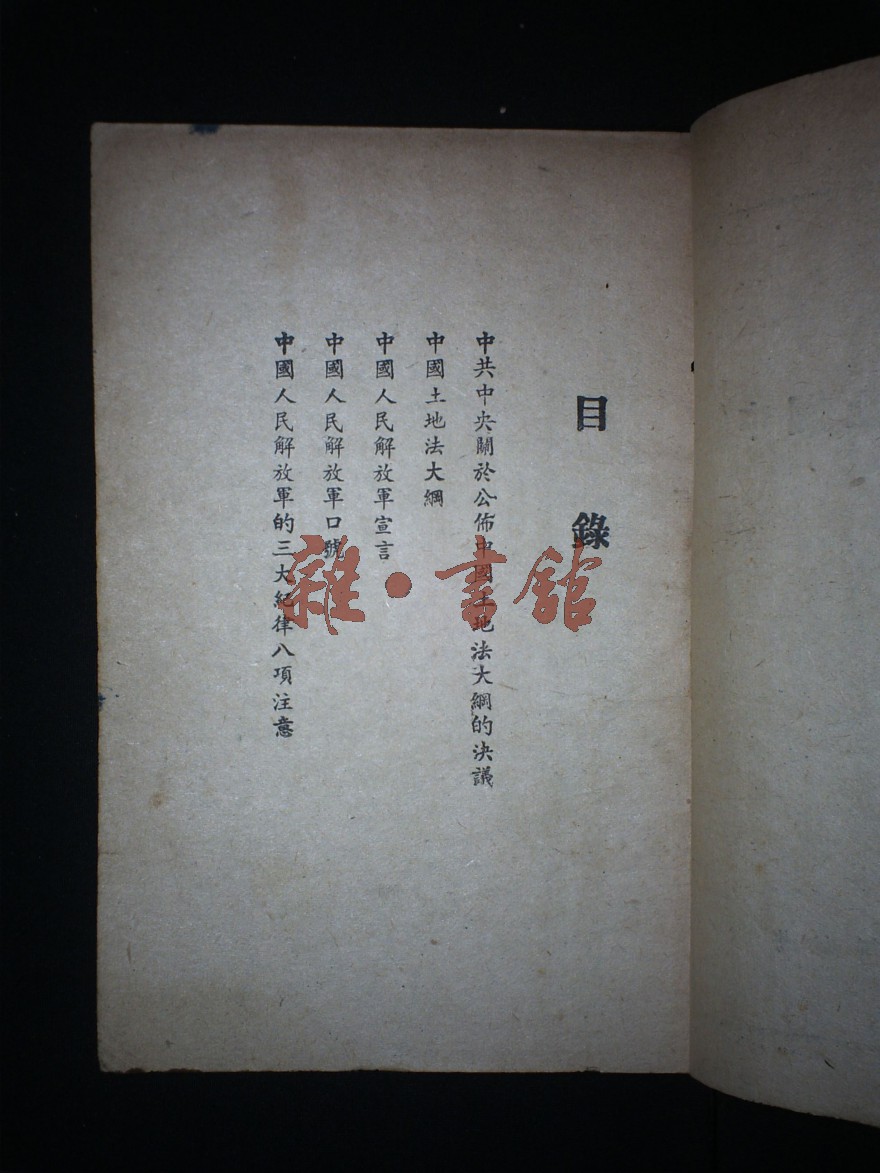 目錄
中共中央關於公佈中國土地法大綱的決議
中國土地法大綱
中國人民解放軍宣言
中國人民解放軍口號
中國人民解放軍的三大紀律八項注意
雜·書舘